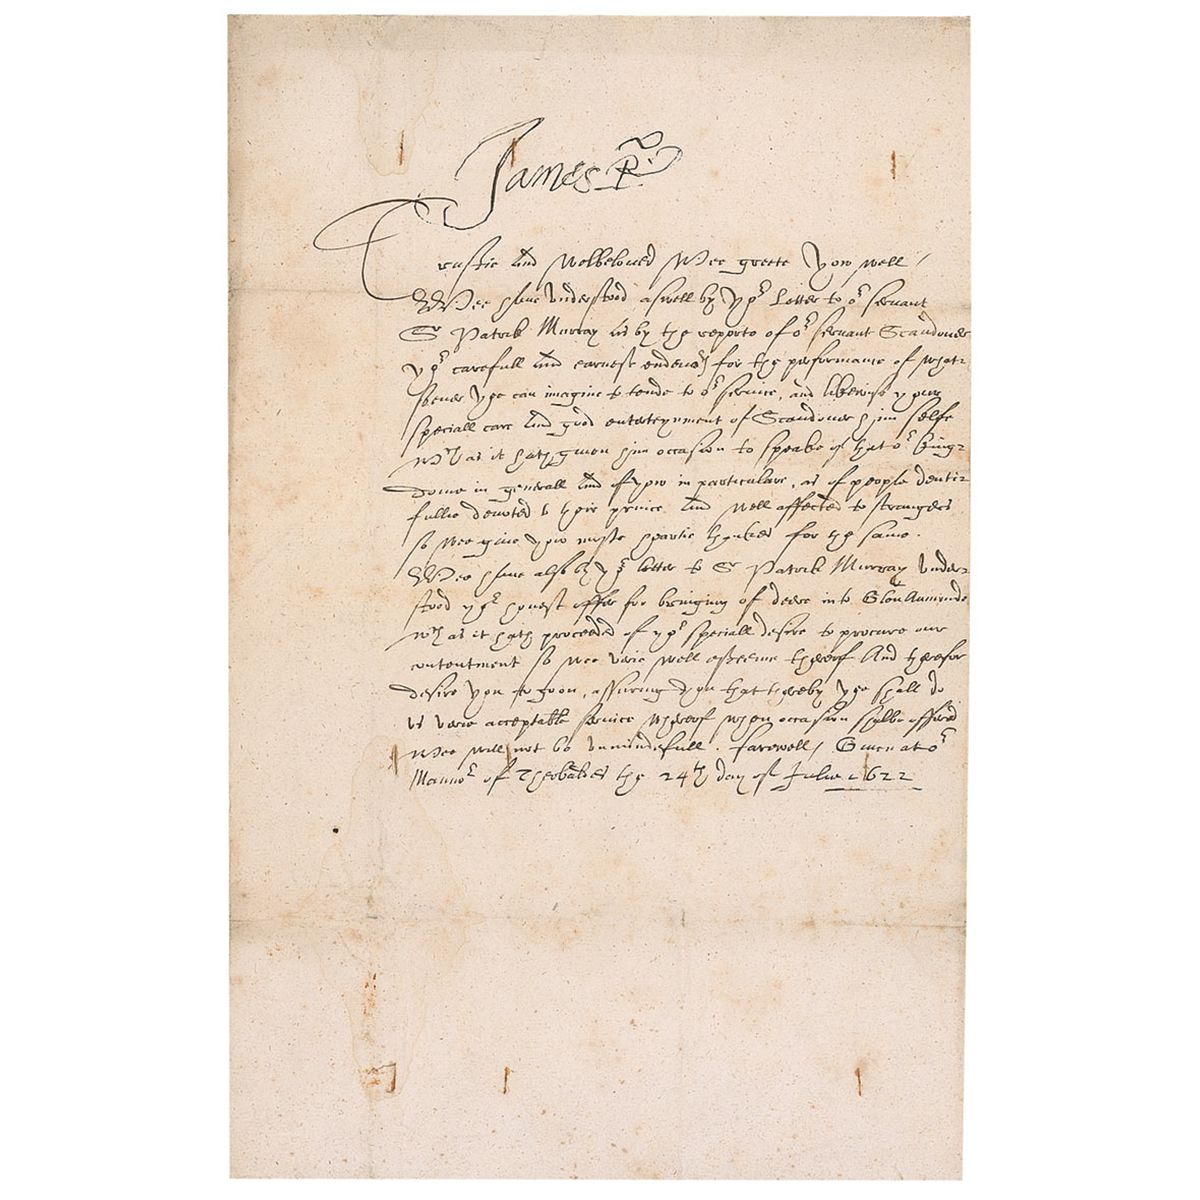 James R
Trustie and Welbeloued Wee greete yow well /
Wee haue vnderstood aswell by yor letter to or servant
Sr Patrick Murray as by the reporte of or servant Scandouer
yor carefull and earnest endeuor for the performance of what-
soeuer yee can imagine to tende to or service, and likewise your
speciall care and good enterteynment of Scandouer him selfe
wch as it hath giuen him occasion to speake of that or King-
dome in generall and of yow in particulare, as of people
fullie deuoted to their prince and well affected to strangers
so wee giue yow moste heartie thankes for the same.
Wee haue also by yor letter to Sr Patrick Murray vnder-
stood yor honest offer for bringing of deere into
wch as it hath proceeded of yor speciall desire to procure our
contentment so wee verie well esteeme thereof And therefor
desire you to goon, assuring you that thereby yee shall do
vs verie acceptable service whereof when occasion shalbe offered
Wee will not be vnmindefull. farewell / Giuen at or
Mannor of Theobaldes the 24th day of Julie 1622